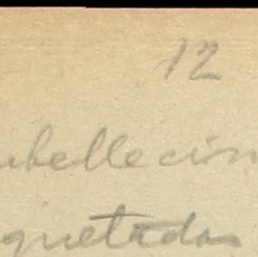 12
ubellecin
quetadas